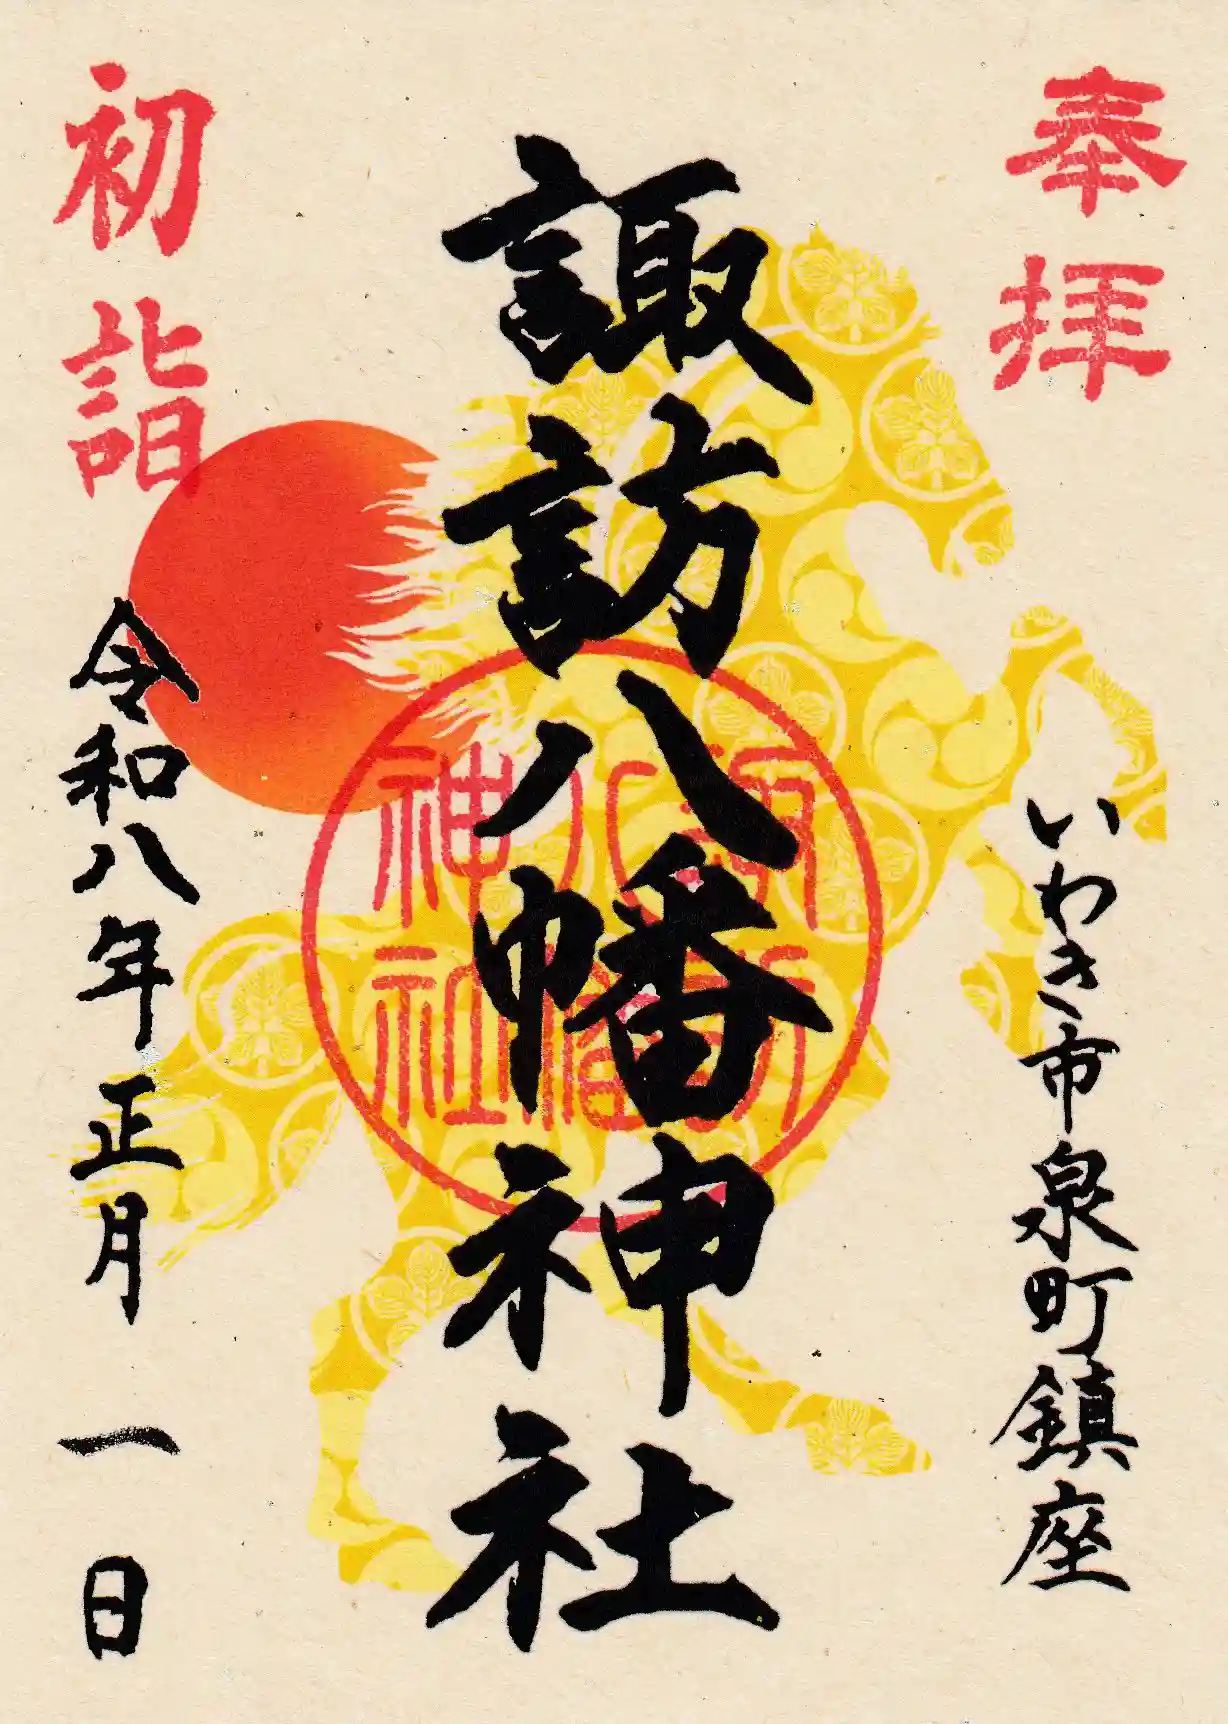 奉拝
いわき市泉町鎮座
諏訪八幡神社
諏訪
八幡
神社
初詣
令和八年正月一日